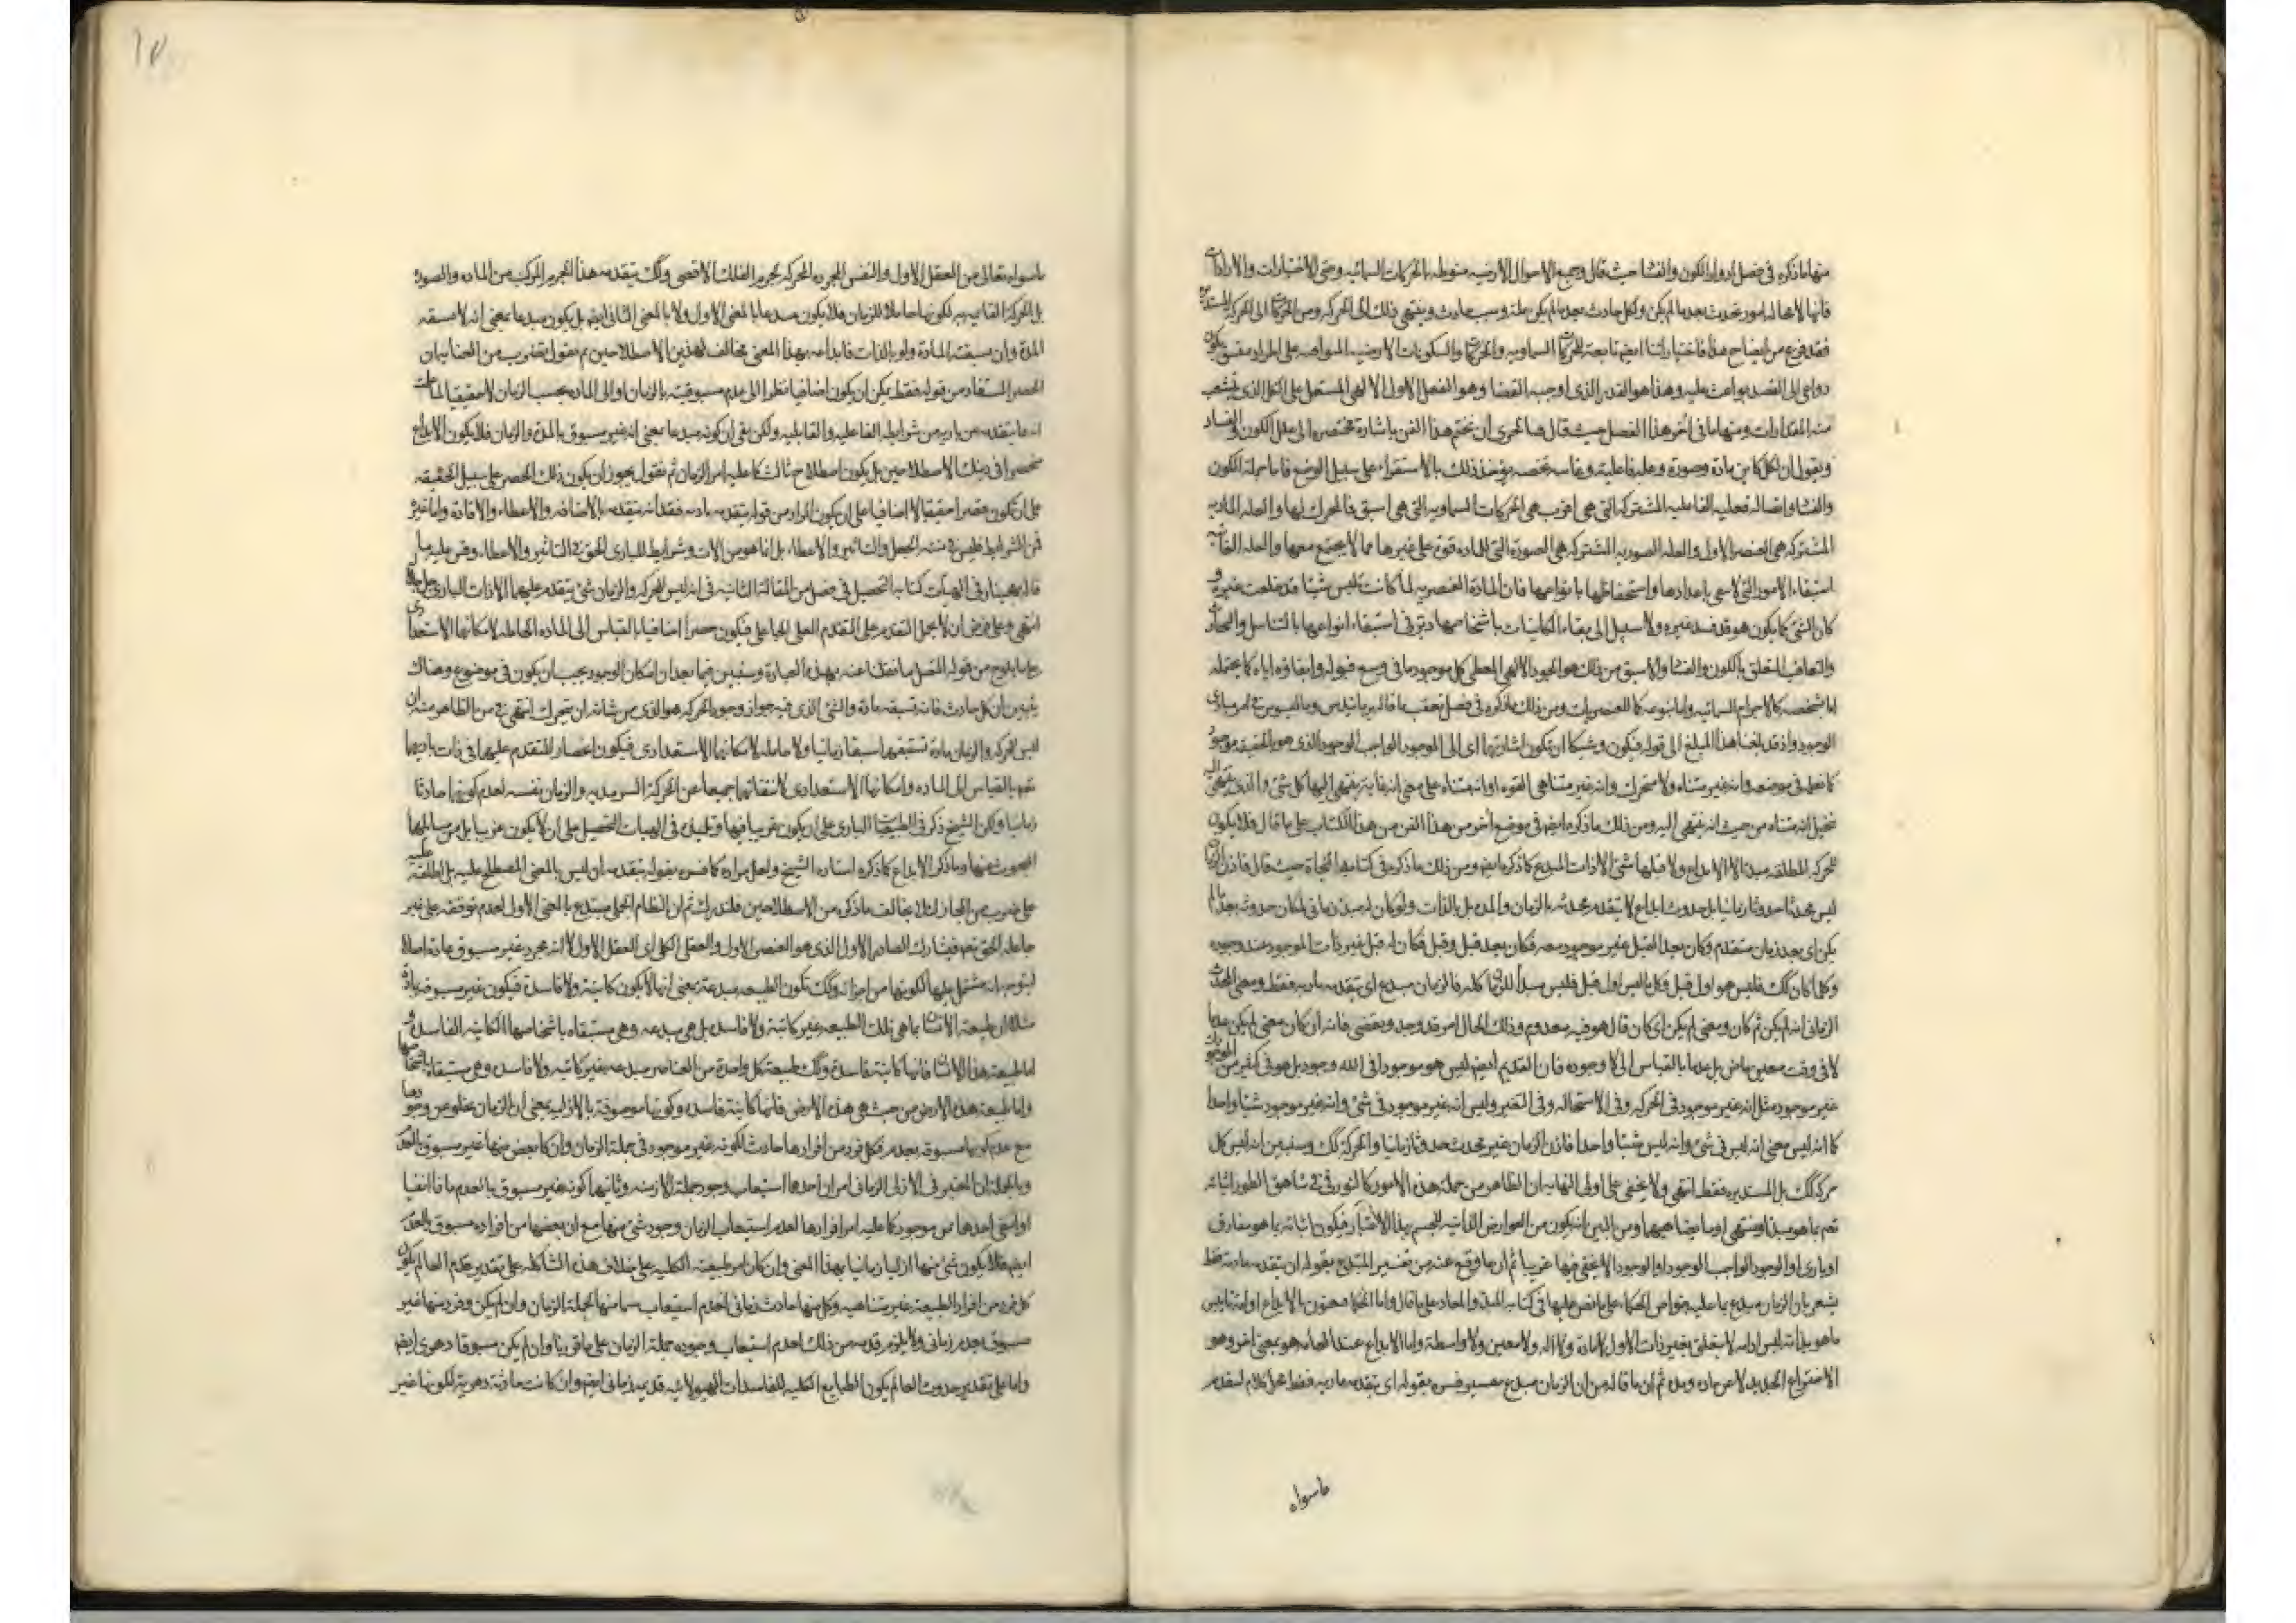 منها ما ذكره في فصل ادوار الكون والفسا حيث قال وجميع الاحوال الارضيه منوطه بالحركات السمائيه وحتى الاختيارات والارادات
فانها لا محاله امور تحدث بعد ما لم يكن ولكل حادث بعد ما لم يكن علة وسبب حادث وينتهي ذلك الى الحركه ومن الحركات الى الحركه المستديره
فقد فرغ من ايضاح هذا فاختياراتنا ايضا تابعة للحركات السماويه والحركات والسكونات الارضيه المتوافيه على اطراد متسق يكون
دواعي الى القصد بواعث عليه وهذا هو القدر الذي اوجبه القضا وهو الفعل الاول الالهي المستعلي على الكل الذي يتشعب
منه المقدارات ومنها ما في آخر هذا الفصل حيث قال فبالحري ان نختم هذا الفن باشارة مختصره الى علل الكون والفساد
ونقول ان لكل كاين مادة وصورة وعله فاعليه وغايه تخصه يؤخذ ذلك بالاستقراء على سبيل الوضع فاما جملة الكون
والفسا واتصاله فعليه الفاعليه المشتركه التي هي اقرب هي الحركات السماويه التي هي اسبق فالمحرك لها والعله الماديه
المشتركه هي العنصر الاول والعله الصوريه المشتركه هي الصورة التي للماده قوة على غيرها مما لا يجتمع معها والعله الغائيه
استبقاء الامور التي لا تبقى باعدادها واستحفاظها بانواعها فان المادة العنصريه لما كانت تلبس شيئا قد خلعت غيره و
كان الشئ كما يكون هو قد فسد غيره ولا سبيل الى بقاء الكاينات باشخاصها دبر في استبقاء انواعها بالتناسل والتجاذب
والتعاقب المتعلق بالكون والفسا والاسبق من ذلك هو الجود الالهي المعطي كل موجود ما في وسع قبوله وابقاؤه اياه كما يحتمله
اما بشخصه كالاجرام السمائيه واما بنوعه كما للعنصريات ومن ذلك ما ذكره في فصل تعقب ما قاله برمانيدس وماليسوس في امر مبادئ
الوجود واذ قد بلغنا هذا المبلغ الى قوله فيكون وشيكا ان تكون اشارتهما اى الى الموجود الواجب الوجود الذي هو بالحقيقه موجود
كما نعلمه في موضعه وانه غير متناه ولا متحرك وانه غير متناهي القوه او انه متناه على معنى انه غايه ينتهي اليها كل شئ والذي ينتهي اليه
تخيل انه متناه من حيث انه ينتهي اليه ومن ذلك ما ذكره ايضا في موضع آخر من هذا الفن من هذا الكتاب على ما قال فلا يكون
للحركه المطلقه مبدأ الا الابداع ولا قبلها شئ الا ذات المبدع كما ذكره ايضا ومن ذلك ما ذكره في كتابه النجاة حيث قال فاذن الزمان
ليس محدثا حدوثا زمانيا بل حدوث ابداع لا يتقدمه محدثه بالزمان والمده بل بالذات ولو كان له مبدء زماني لكان حدوثه بعد ما لم
يكن اي بعد زمان متقدم وكان بعدا لقبل غير موجود معه فكان بعد قبل وقبل فكان له قبل غير ذات الموجود عند وجوده
وكل ما كان كذلك فليس هو اول قبل وكل ما ليس اول قبل فليس مبدأ للزمان كله فالزمان مبدع اي يتقدمه باريه فقط ومعنى المحدث
الزماني انه لم يكن ثم كان ومعنى لم يكن اي كان قال هو فيه معدوم وذلك الحال امر قد وجد وتقضى فانه ان كان معنى لم يكن عدما
لا في وقت معين ماض بل عدما بالقياس الى لا وجوده فان القديم ايضا ليس هو موجودا في الله وجود بل هو في كثير من الوجود
غير موجود مثل انه غير موجود في الحركه وفي الاستحاله وفي التغير وليس انه غير موجود في شئ وانه غير موجود شيئا واحدا
كما انه ليس معنى انه ليس في شئ وانه ليس شيئا واحدا فاذن الزمان غير محدث حدوثا زمانيا والحركه كذلك وسنبين انه ليس كل
حركه كذلك بل المستديره فقط انتهى ولا يخفى على اولي النهايه ان الظاهر من جملة هذه الامور كالنور في شاهق الطور اثباته
تعم بما هو مبدأ ومنتهى
او باري او الوجود الواجب الموجود او الوجود الا يخفى فيها غريبا ثم ان ما وقع عنه من تفسير المبدع بقوله ان يتقدمه باريه فقط
يشعر بان الزمان مبدع
ما هو بذاته ليس ادامه لا يتعلق بغير ذات الاول لا مادة ولا اله ولا معين ولا واسطة واما الابداع عند العامه هو بمعنى اخر وهو
الاختراع الجديد لا عن ماده ومده ثم ان ما قاله من ان الزمان مبدع بتفسير فسره بقوله اى يتقدمه باريه فقط محل كلام لتقدم
ماسواه
١٧
ماسواه تعالى من العقل الاول والنفس المجرده المحركه لجرم الفلك الاقصى وكذلك يتقدمه هذا الجرم المركب من الماده والصوره
بل الحركة القائمه به لكونها حاملة للزمان فلا يكون مبدعا بالمعنى الاول ولا بالمعنى الثاني ايضا بل يكون مبدعا بمعنى انه لا يسبقه
المدة وان سبقته المادة ولو بالذات فابداعه بهذا المعنى مخالف لهذين الاصطلاحين ثم نقول بتقريب من البيان ان
الحصر المستفاد من قوله فقط يمكن ان يكون اضافيا نظرا الى عدم مسبوقيته بالزمان او الى الماده بحسب الزمان لا حقيقيا لما علمت
انه ما يتقدمه من باريه من شرايطه الفاعليه والقابليه ولكن بقى ان كونه مبدعا بمعنى انه غير مسبوق بالمدة والزمان فلا يكون الابداع
منحصرا في ذينك الاصطلاحين بل يكون اصطلاح ثالث كما عليه امر الزمان ثم نقول يجوز ان يكون ذلك الحصر على سبيل الحقيقه
على ان يكون قصرا حقيقيا لا اضافيا على ان يكون المراد من قوله يتقدمه باريه فقط انه يتقدمه بالاضافه والاعطاء والافادة واما غيره
من الشرايط فليس منه الجعل والتاثير والاعطاء بل انما هو من الات وشرايط للباري الحق في التاثير والاعطاء وقس عليه ما
قاله بهمنيار في الهيات كتابه التحصيل في فصل من المقالة الثانيه في انه ليس للحركه والزمان شئ يتقدم عليهما الا ذات الباري جل جلاله
انتهى وعلى فرض ان لا يحمل التقدم على المتقدم العلى الجاعلى فيكون حصرا اضافيا بالقياس الى الماده الحامله لامكانها الاستعدادى
وسنبين فيما بعد ان امكان الوجود يجب ان يكون في موضوع وهناك
يتبين ان كل حادث فانه تسبقه مادة والشئ الذي فيه جواز وجود الحركه هو الذي من شانه ان يتحرك انتهى فمن الظاهر منه ان
ليس للحركه والزمان مادة تسبقهما سبقا زمانيا ولا حامله لامكانهما الاستعدادي فيكون انحصار المتقدم عليهما في ذات باريهما
نعم بالقياس الى الماده وامكانها الاستعدادي لانتفائهما جميعا عن الحركة السرمديه والزمان نفسه لعدم كونهما حادثا
زمانيا وكان الشيخ ذكر في الطبيعيات الباري على ان يكون غريبا فيها وتلميذه في الهيات التحصيل على ان لا يكون غريبا بل من مسائلها
المبحوث عنها وما ذكر الابداع كما ذكره استاده الشيخ ولعل مراده كما فسره بقوله يتقدمه ان ليس بالمعنى المصطلح عليه بل اطلقه عليه
على ضرب من المجاز لئلا يخالف ما ذكره من الاصطلاحين فلندرك ثم ان النظام الجملي مبتدع بالمعنى الاول لعدم توقفه على غير
جاعله الحق تعم فيشارك الصادر الاول الذي هو العنصر الاول والعقل الكلي اي العقل الاول لانه مجرد غير مسبوق بمادة اصلا
مشتمل عليها لكونها من اجزائه وكذلك تكون الطبيعه مبدعة بمعنى انها لا يكون كائنة ولا فاسدة فيكون غير مسبوقه بمادة
مثلا ان طبيعة الانسان بما هي تلك الطبيعه غير كائنة ولا فاسده بل هي مبدعه وهي مستبقاه باشخاصها الكائنه الفاسده و
اما طبيعة هذا الانسان فانها كائنة فاسدة وكذلك طبيعة كل واحدة من العناصر مبدعه غير كائنه ولا فاسده وهي مستبقاه باشخاصها
واما طبيعة هذه الارض من حيث هي هذه الارض فانها كائنة فاسده وكونها موصوفة بالازليه بمعنى ان الزمان لا يخلو عن وجودها
مع عدم كونها مسبوقه بعدم فكل فرد من افرادها حادث لكونه غير موجود في جملة الزمان وان كان بعض منها غير مسبوق بالعدم
وبالجملة ان المعتبر في الازلي الزماني امران احدهما استيعاب وجود جملة الازمنه وثانيهما كونه غير مسبوق بالعدم فاذا انتفيا
او انتفى احدهما
ايضا فلا يكون شئ منها ازليا زمانيا بهذا المعنى وان كان امر طبيعته الكليه على خلاف هذه الشاكله على تقدير قدم العالم يكون
كل فرد من افراد الطبيعه غير متناهيه وكل منها حادث زماني لعدم استيعاب شئ منها لجملة الزمان وان لم يكن فرد منها غير
مسبوق بعدم زماني ولا يلزم قدمه من ذلك لعدم استيعاب وجوده جملة الزمان على ما قررنا وان لم يكن مسبوقا دهرى ايضا
واما على تقدير حدوث العالم يكون الطبايع الكليه للفاسدات الهيولانيه قديمه زماني ايضا وان كانت حادثة دهرية لكونها غير